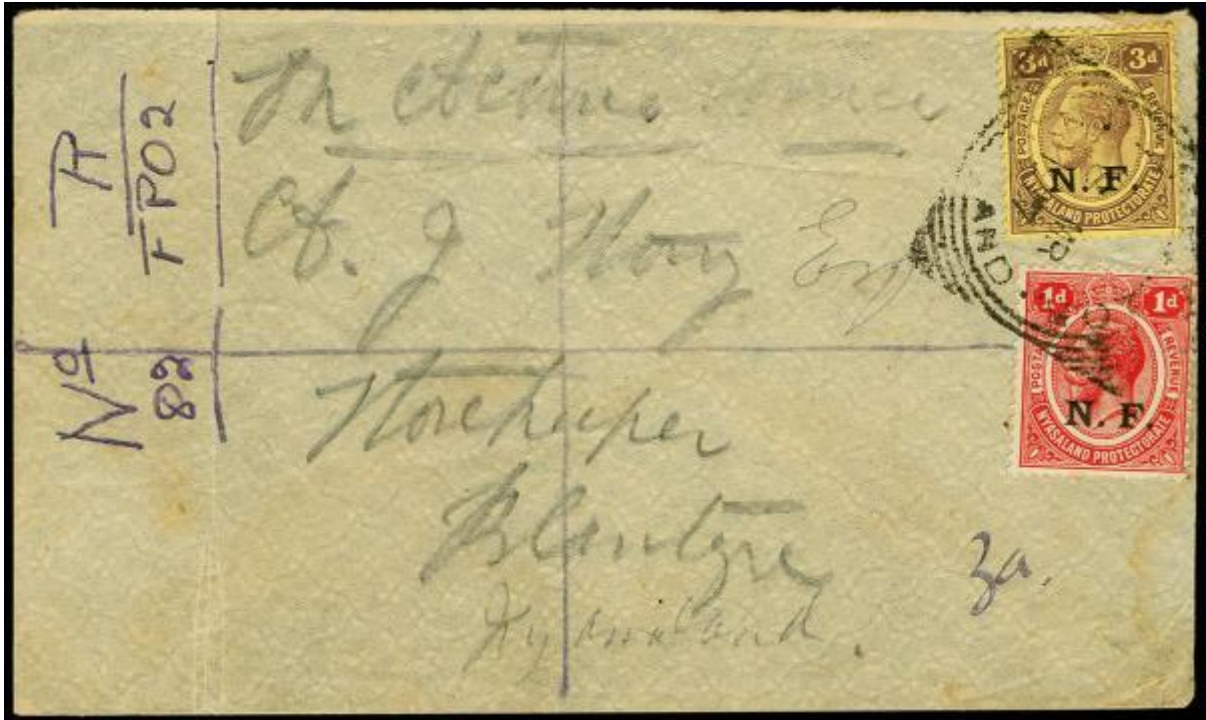 On Active Service
R
FPO2
No
82
C/o. J. Esq
Storekeeper
Blantyre
Nyasaland.
3d 3d
POSTAGE REVENUE
N. F.
NYASALAND PROTECTORATE
1d 1d
POSTAGE REVENUE
N. F.
NYASALAND PROTECTORATE
AND.